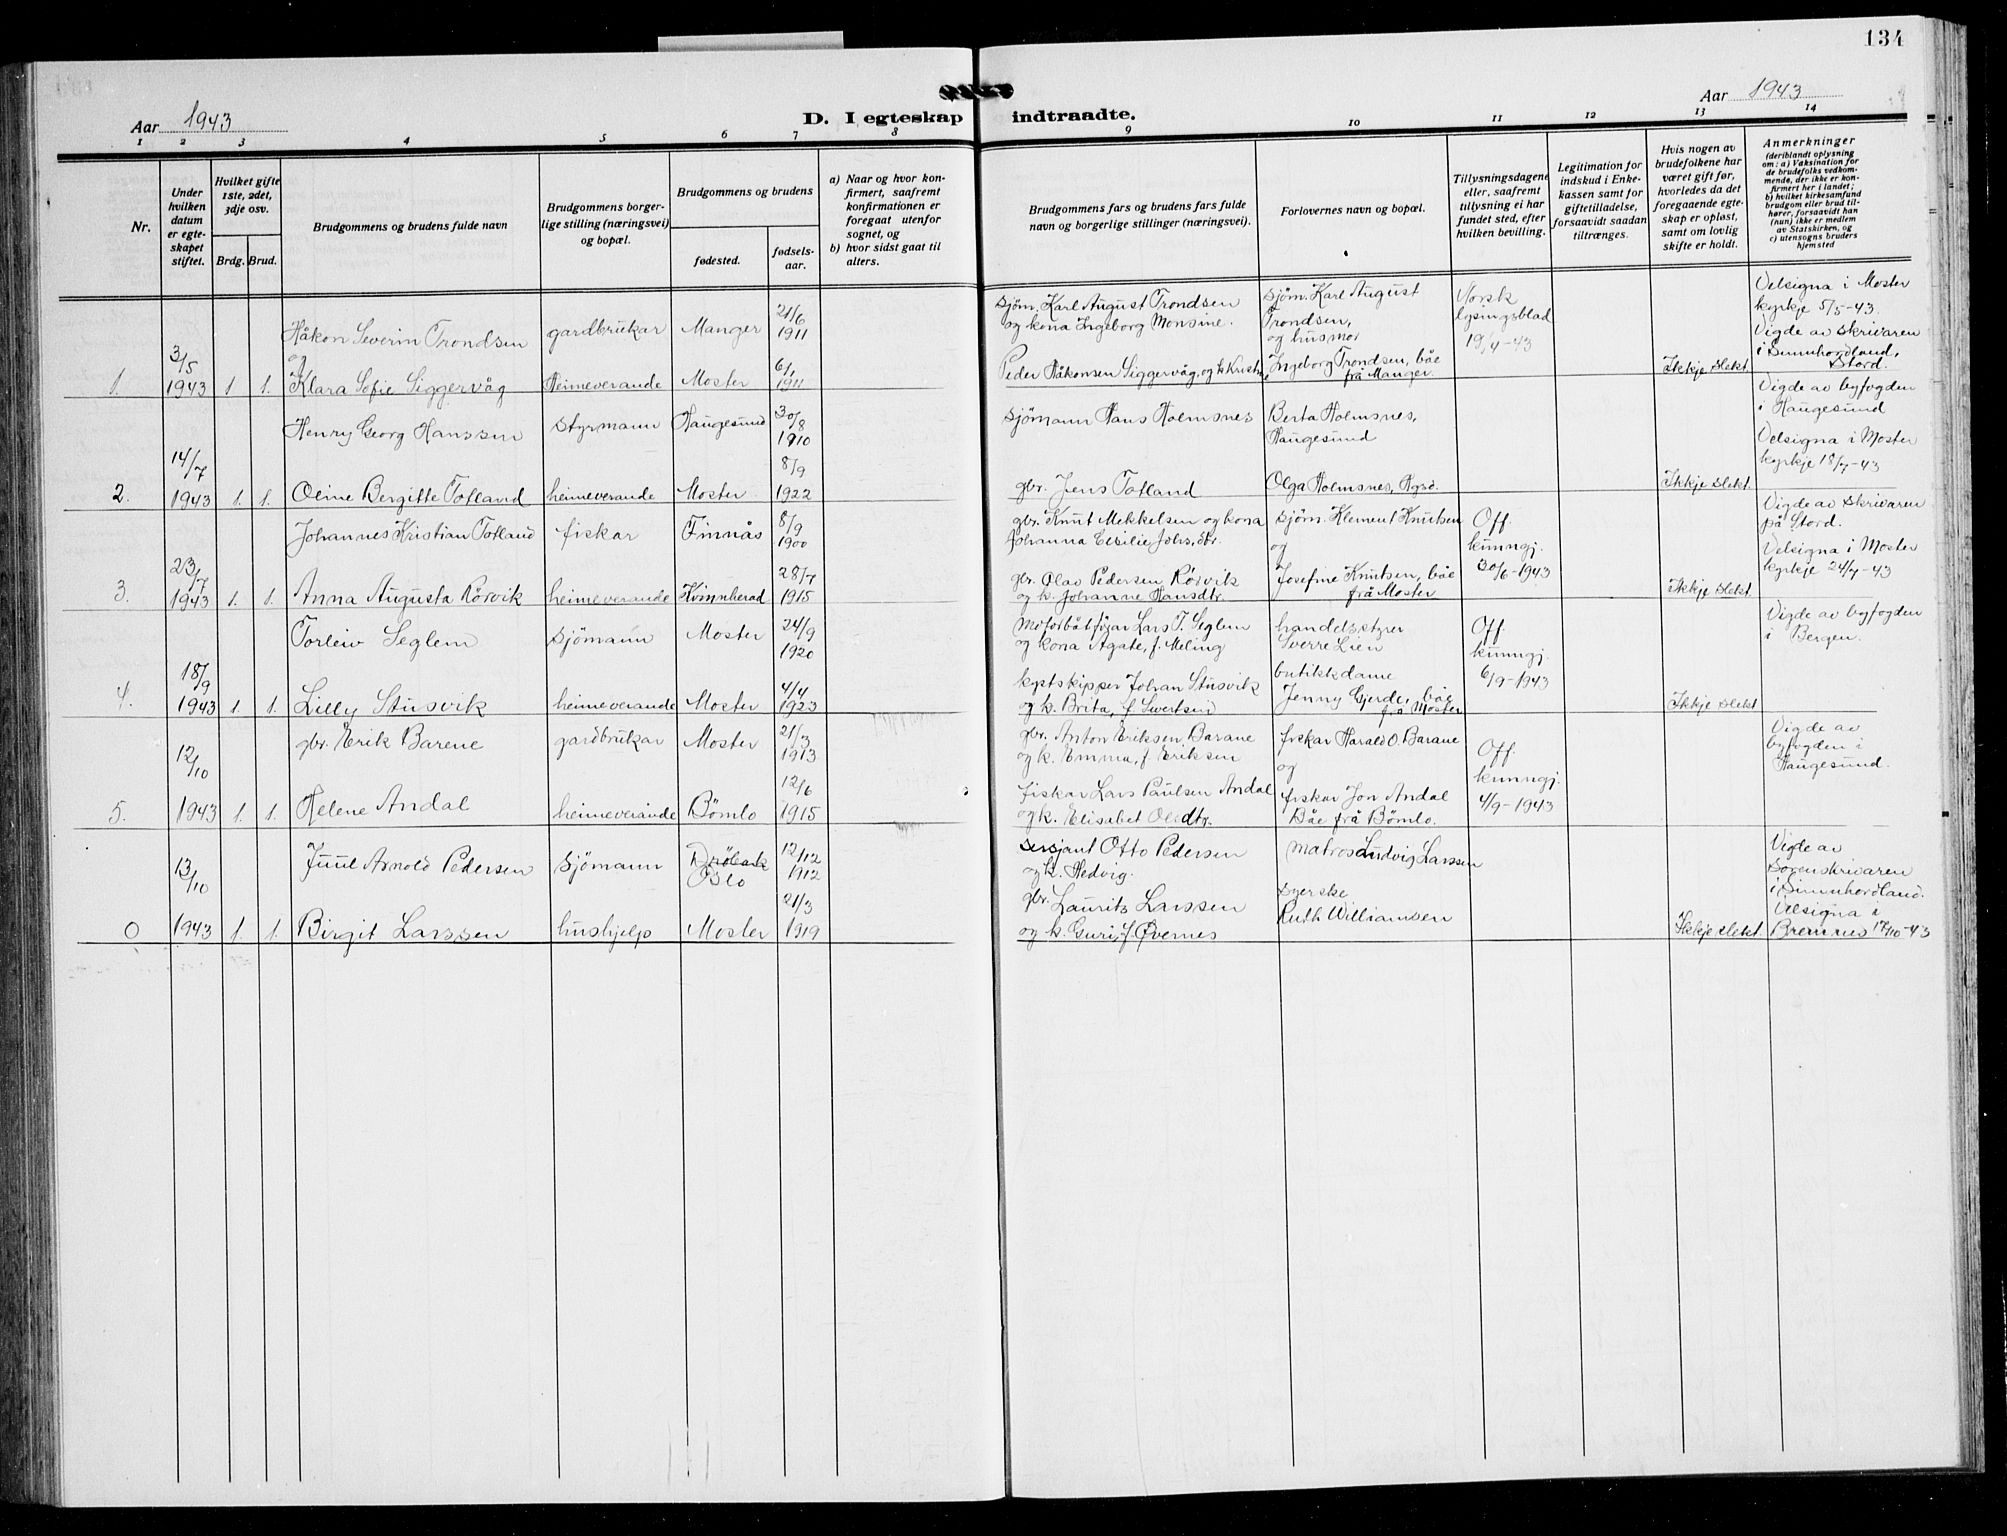 134
Aar 1943
Aar 1943
D. I egteskap indtraadte.
1 2 3 4 5 6 7 8 9 10 11 12 13 14
Nr.
Under hvilken datum er egteskapet stiftet.
Hvilket gifte 1ste, 2det, 3dje osv.
Brdg. Brud.
Brudgommens og brudens fulde navn
Brudgommens borgerlige stilling (næringsvei) og bopæl.
Brudgommens og brudens
fødested.
fødselsaar.
a) Naar og hvor konfirmert, saafremt konfirmationen er foregaat utenfor sognet, og
b) hvor sidst gaat til alters.
Brudgommens fars og brudens fars fulde navn og borgerlige stillinger (næringsvei).
Forlovernes navn og bopæl.
Tillysningsdagene eller, saafremt tillysning ei har fundet sted, efter hvilken bevilling.
Legitimation for indskud i Enkekassen samt for giftetilladelse, forsaavidt saadan tiltrænges.
Hvis nogen av brudefolkene har været gift før, hvorledes da det foregaaende egteskap er opløst, samt om lovlig skifte er holdt.
Anmerkninger
(deriblandt oplysning om: a) Vaksination for de brudefolks vedkommende, der ikke er konfirmert her i landet; b) hvilket kirkesamfund brudgom eller brud tilhører, forsaavidt han (hun) ikke er medlem av Statskirken, og c) utensogns bruders hjemsted
1. 3/5 1943 1 1.
Håkon Severin Trondsen gardbrukar Manger 21/6 1911
og
Klara Sofie Siggervåg Heimeverande Moster 6/1 1911
sjøm. Karl August Trondsen
og kona Ingeborg Monsine.
Peder Håkonsen Siggervåg, og k. Kristi
sjøm. Karl August
Trondsen,
og husmor
Ingeborg Trondsen, båe
frå Manger.
Norsk
lysingsblad
19/4-43
Ikkje slekt
Velsigna i Moster
kyrkje 5/5-43.
Vigde av skrivaren
i Sunnhordland,
Stord.
2. 14/7 1943 1. 1.
Henry Georg Hanssen styrmann Haugesund 30/8 1910
Oline Bergitte Totland heimeverande Moster 8/9 1922
sjømann Hans Holmsnes
gbr. Jens Totland
Berta Holmsnes,
Haugesund
Olga Holmsnes, Hgsd.
Ikkje slekt.
Vigde av byfogden
i Haugesund
Velsigna i Moster
kyrkje 18/7-43
3. 23/7 1943 1. 1.
Johannes Kristian Totland fiskar Finnås 8/9 1900
Anna Augusta Rörvik heimeverande Kvinnherad 28/7 1915
gbr. Knut Mekkelsen og kona
Johanna Cesilie Johs. dtr.
gbr. Olav Pedersen Rörvik
og k. Johanne Hansdtr.
sjøm. Klement Knutsen
og
Josefine Knutsen, båe
frå Moster
Off.
kunngj.
30/6-1943
Ikkje slekt
Vigde av skrivaren
på Stord.
Velsigna i Moster
kyrkje 24/7-43
4. 18/9 1943 1. 1.
Torleiv Seglem sjömann Moster 24/9 1920
Lilly Stusvik heimeverande Moster 4/4 1923
Motorbåtförar Lars T. Seglem
og kona Agate, f. Meling
kystskipper Johan Stusvik
og k. Brita, f. Sivertsen
handelsstyrer
Sverre Lien
butikkdame
Jenny Gjerde, båe
frå Moster
Off.
kunngj.
6/9-1943
Ikkje slekt
Vigde av byfogden
i Bergen.
5. 12/10 1943 1. 1.
gbr. Erik Barene gardbrukar Moster 21/3 1913
Helene Andal heimeverande Bömlo 12/6 1915
gbr. Anton Eriksen Barane
og k. Emma, f. Eriksen
fiskar Lars Paulsen Andal
og k. Elisabet Olsdtr.
fiskar Harald O. Barane
og
fiskar Jon Andal
Båe frå Bömlo.
Off.
kunngj.
4/9-1943
Vigde av
byfogden i
Haugesund.
0 13/10 1943 1. 1.
Juul Arnold Pedersen sjömann Oslo 12/12 1912
Birgit Larssen hushjelp Moster 21/3 1919
sersjant Otto Pedersen
og k. Hedvig.
gbr. Laurits Larssen
og k. Guri, f. Øvernes
matros Ludvig Larssen
syerske
Ruth Williamsen
Ikkje slekt.
Vigde av
Sorenskrivaren
i Sunnhordland.
Velsigna i
Bremnes 17/10-43